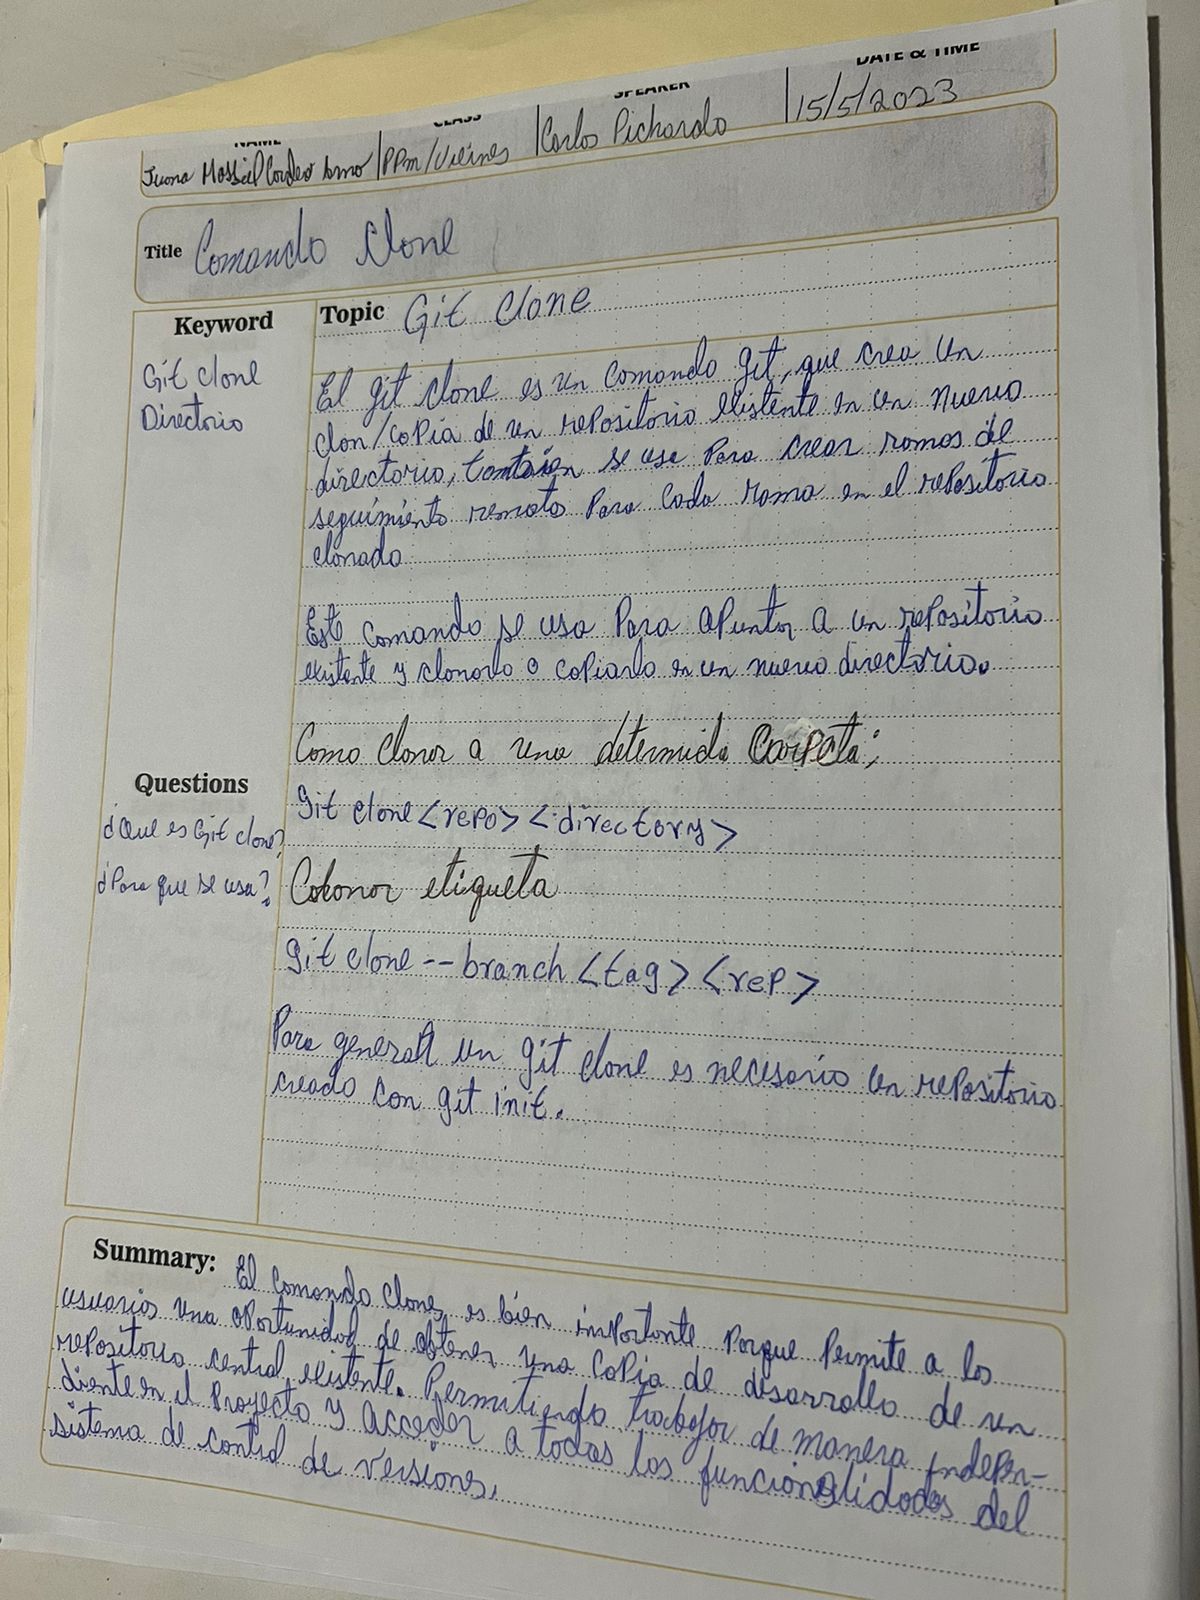 NAME CLASS SPEAKER DATE & TIME
Juana Cordero PPm/Viernes Carlos Pichardo 15/5/2023
Title Comando Clone
Keyword
Git clone
Directorio
Questions
¿Que es Git clone?
¿Para que se usa?
Topic Git Clone
El git clone es un comando git, que crea un
clon/copia de un repositorio existente en un nuevo
directorio, también se usa para crear ramas de
seguimiento remoto para cada rama en el repositorio
clonado
Este comando se usa para apuntar a un repositorio
existente y clonarlo o copiarlo en un nuevo directorio.
Como clonar a una determida Carpeta;
git clone <repo> <directory>
Colonar etiqueta
git clone --branch <tag> <rep>
Para generar un git clone es necesario un repositorio
creado con git init.
Summary: El comando clone, es bien importante porque permite a los
usuarios una oportunidad de obtener una copia de desarrollo de un
repositorio central existente. Permitiendo trabajar de manera indepen-
diente en el proyecto y acceder a todas las funcionalidades del
sistema de control de versiones.